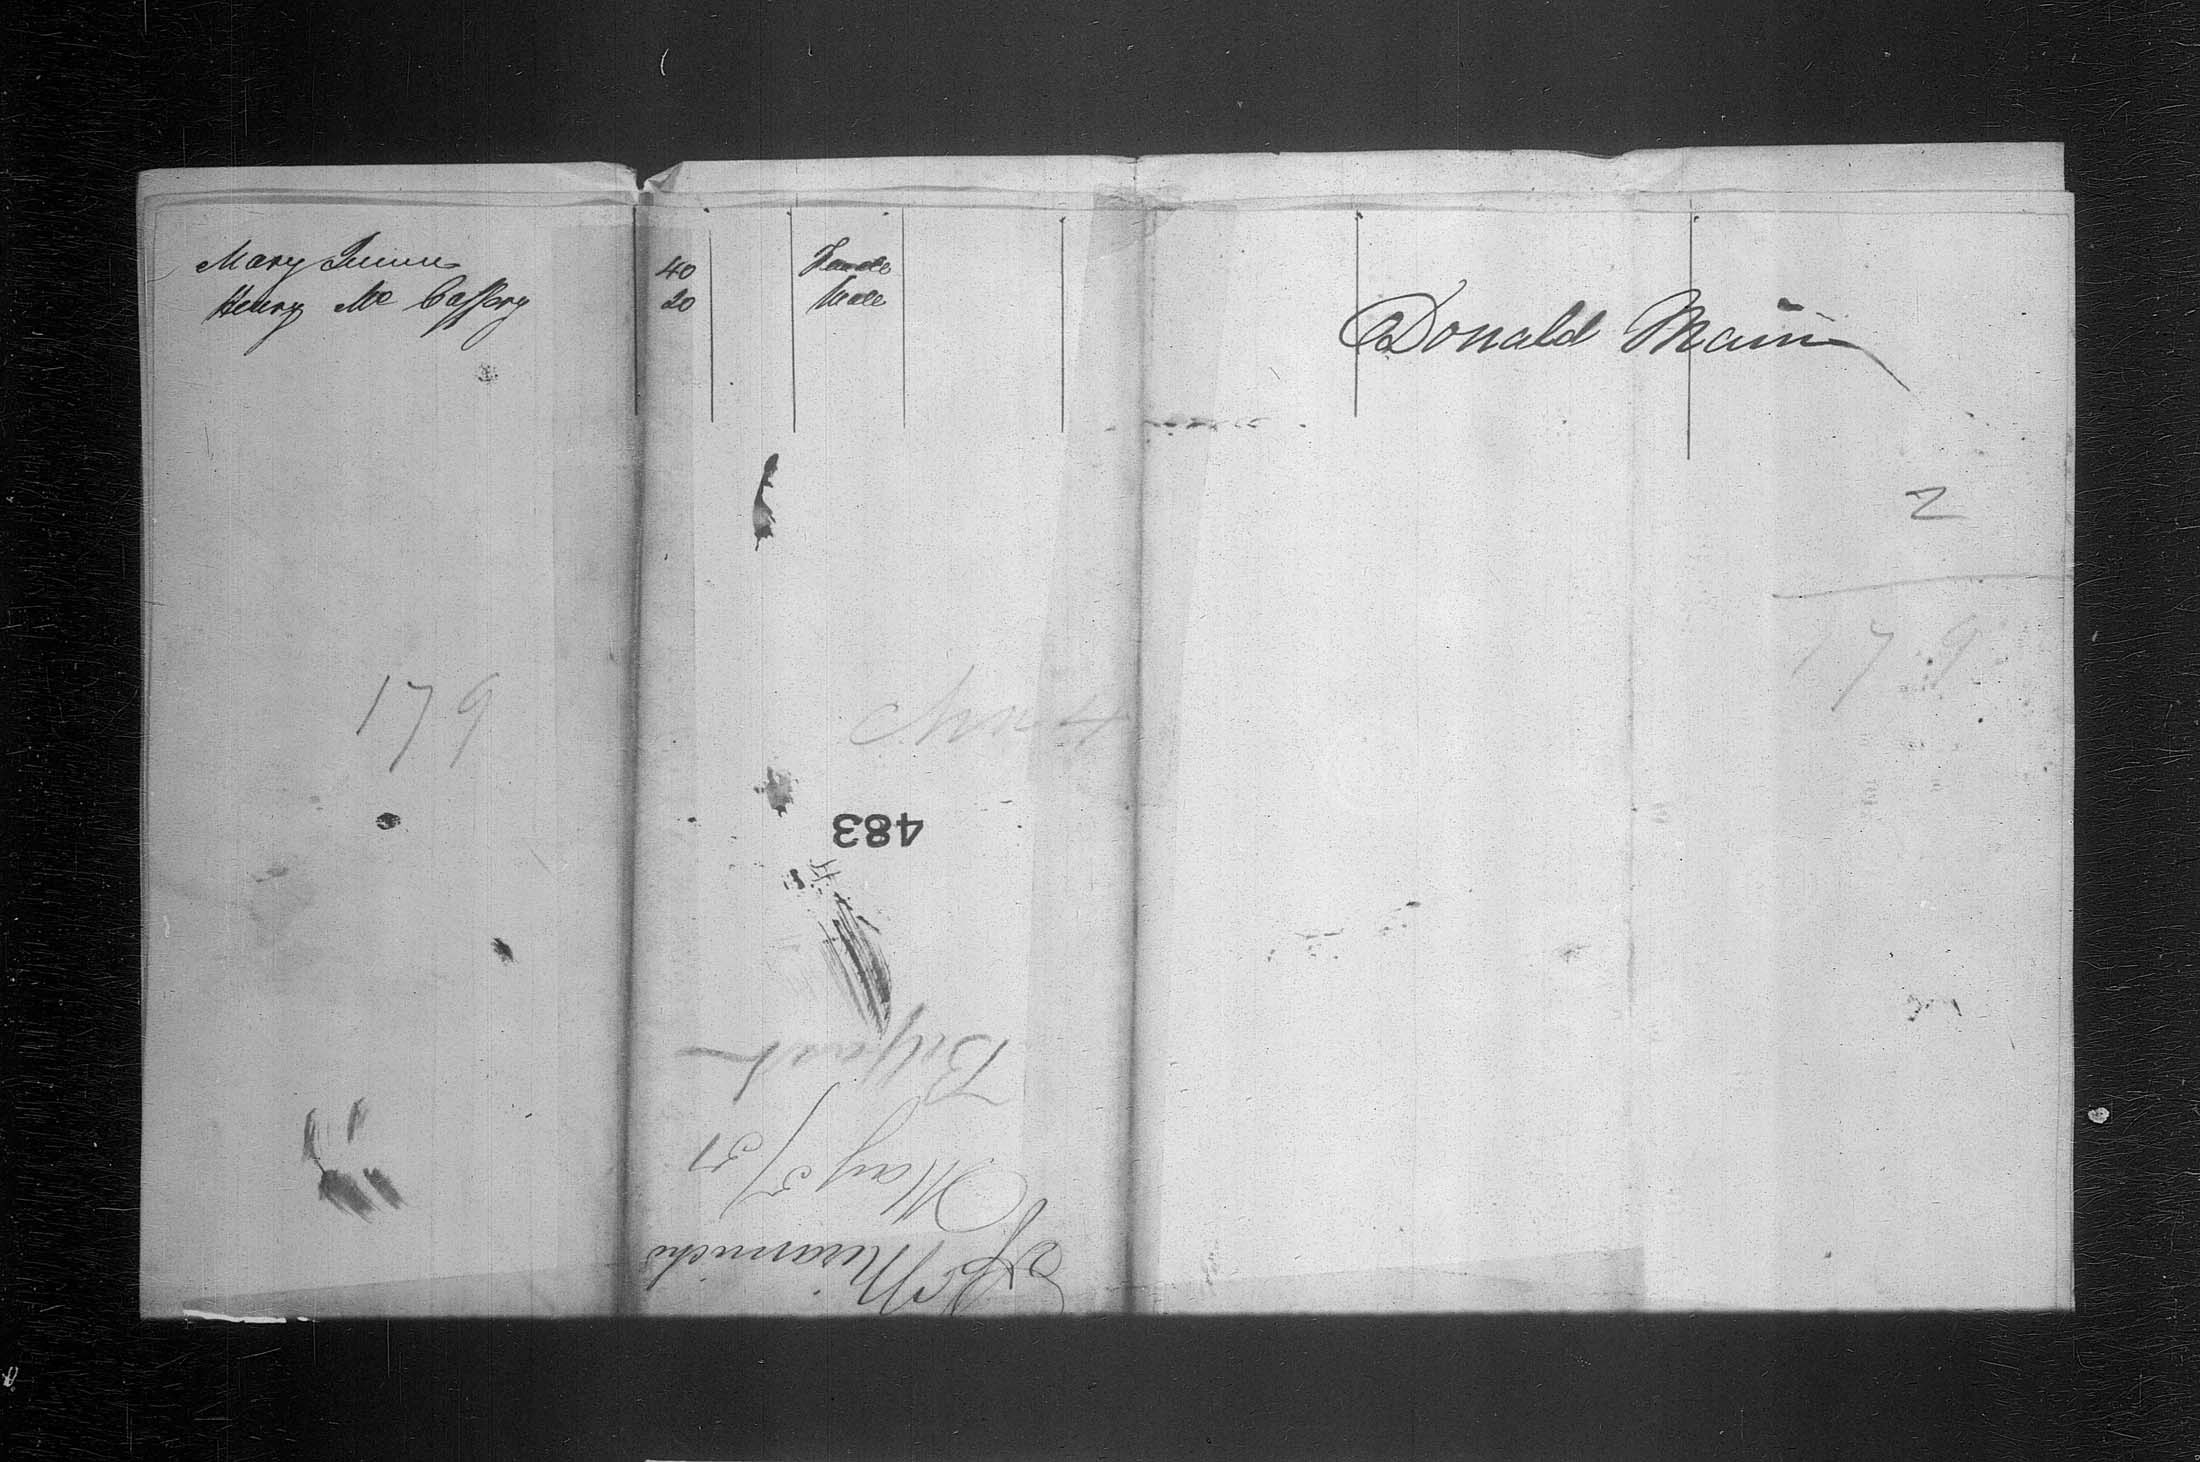 Mary Quinn 40 Female
Henry Mc Caffery 20 Male
Donald Main
2
179
179
483
Belfast
May 5/51
Miramichi